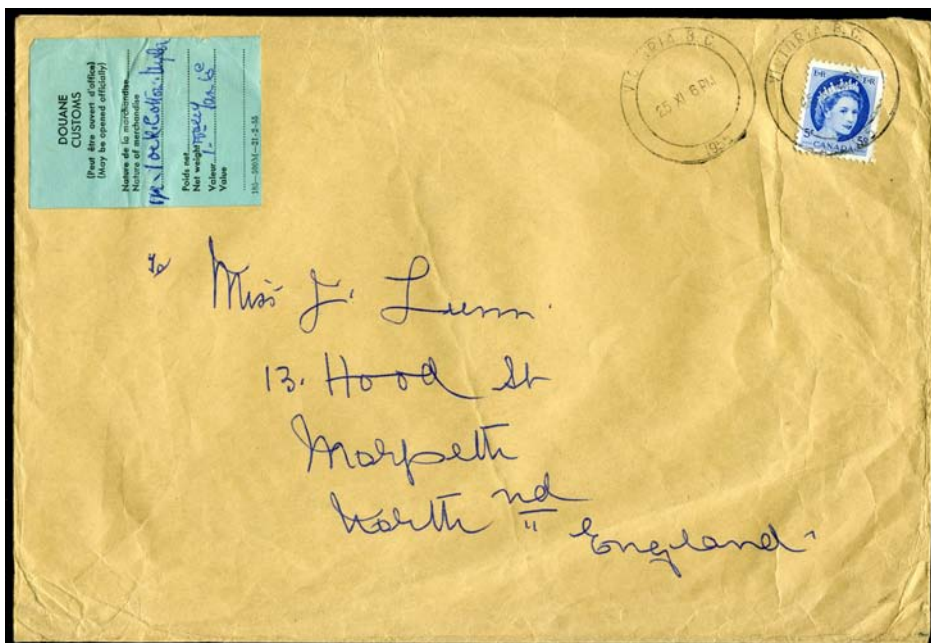 DOUANE
CUSTOMS
(Peut être ouvert d'office)
(May be opened officially)
Nature de la marchandise
Nature of merchandise
Poids net
Net weight
Valeur
Value
VICTORIA B.C.
25 XI 6 PM
VICTORIA B.C.
E·R E·R
5c 5c
CANADA
To
Miss J. Lunn.
13. Hood St
Morpeth
North nd
England